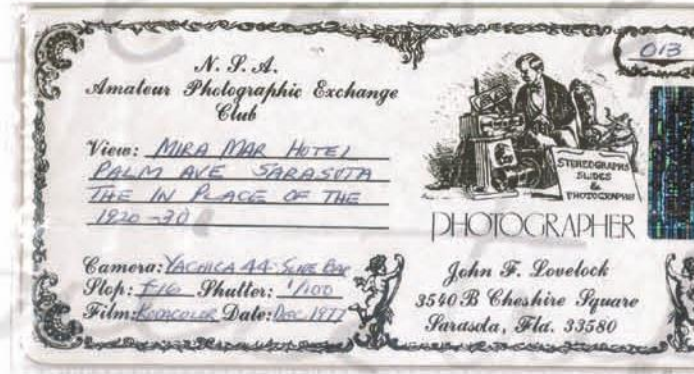 013
N. S. A.
Amateur Photographic Exchange
Club
View: MIRA MAR HOTEL
PALM AVE SARASOTA
THE IN PLACE OF THE
1920-30
Camera: YACHICA 44-SLIDE BAR
Stop: F16 Shutter: 1/100
Film: KODACOLOR Date: DEC 1977
STEREOGRAPHS
SLIDES
&
PHOTOGRAPHS
PHOTOGRAPHER
John F. Lovelock
3540 B Cheshire Square
Sarasota, Fla. 33580